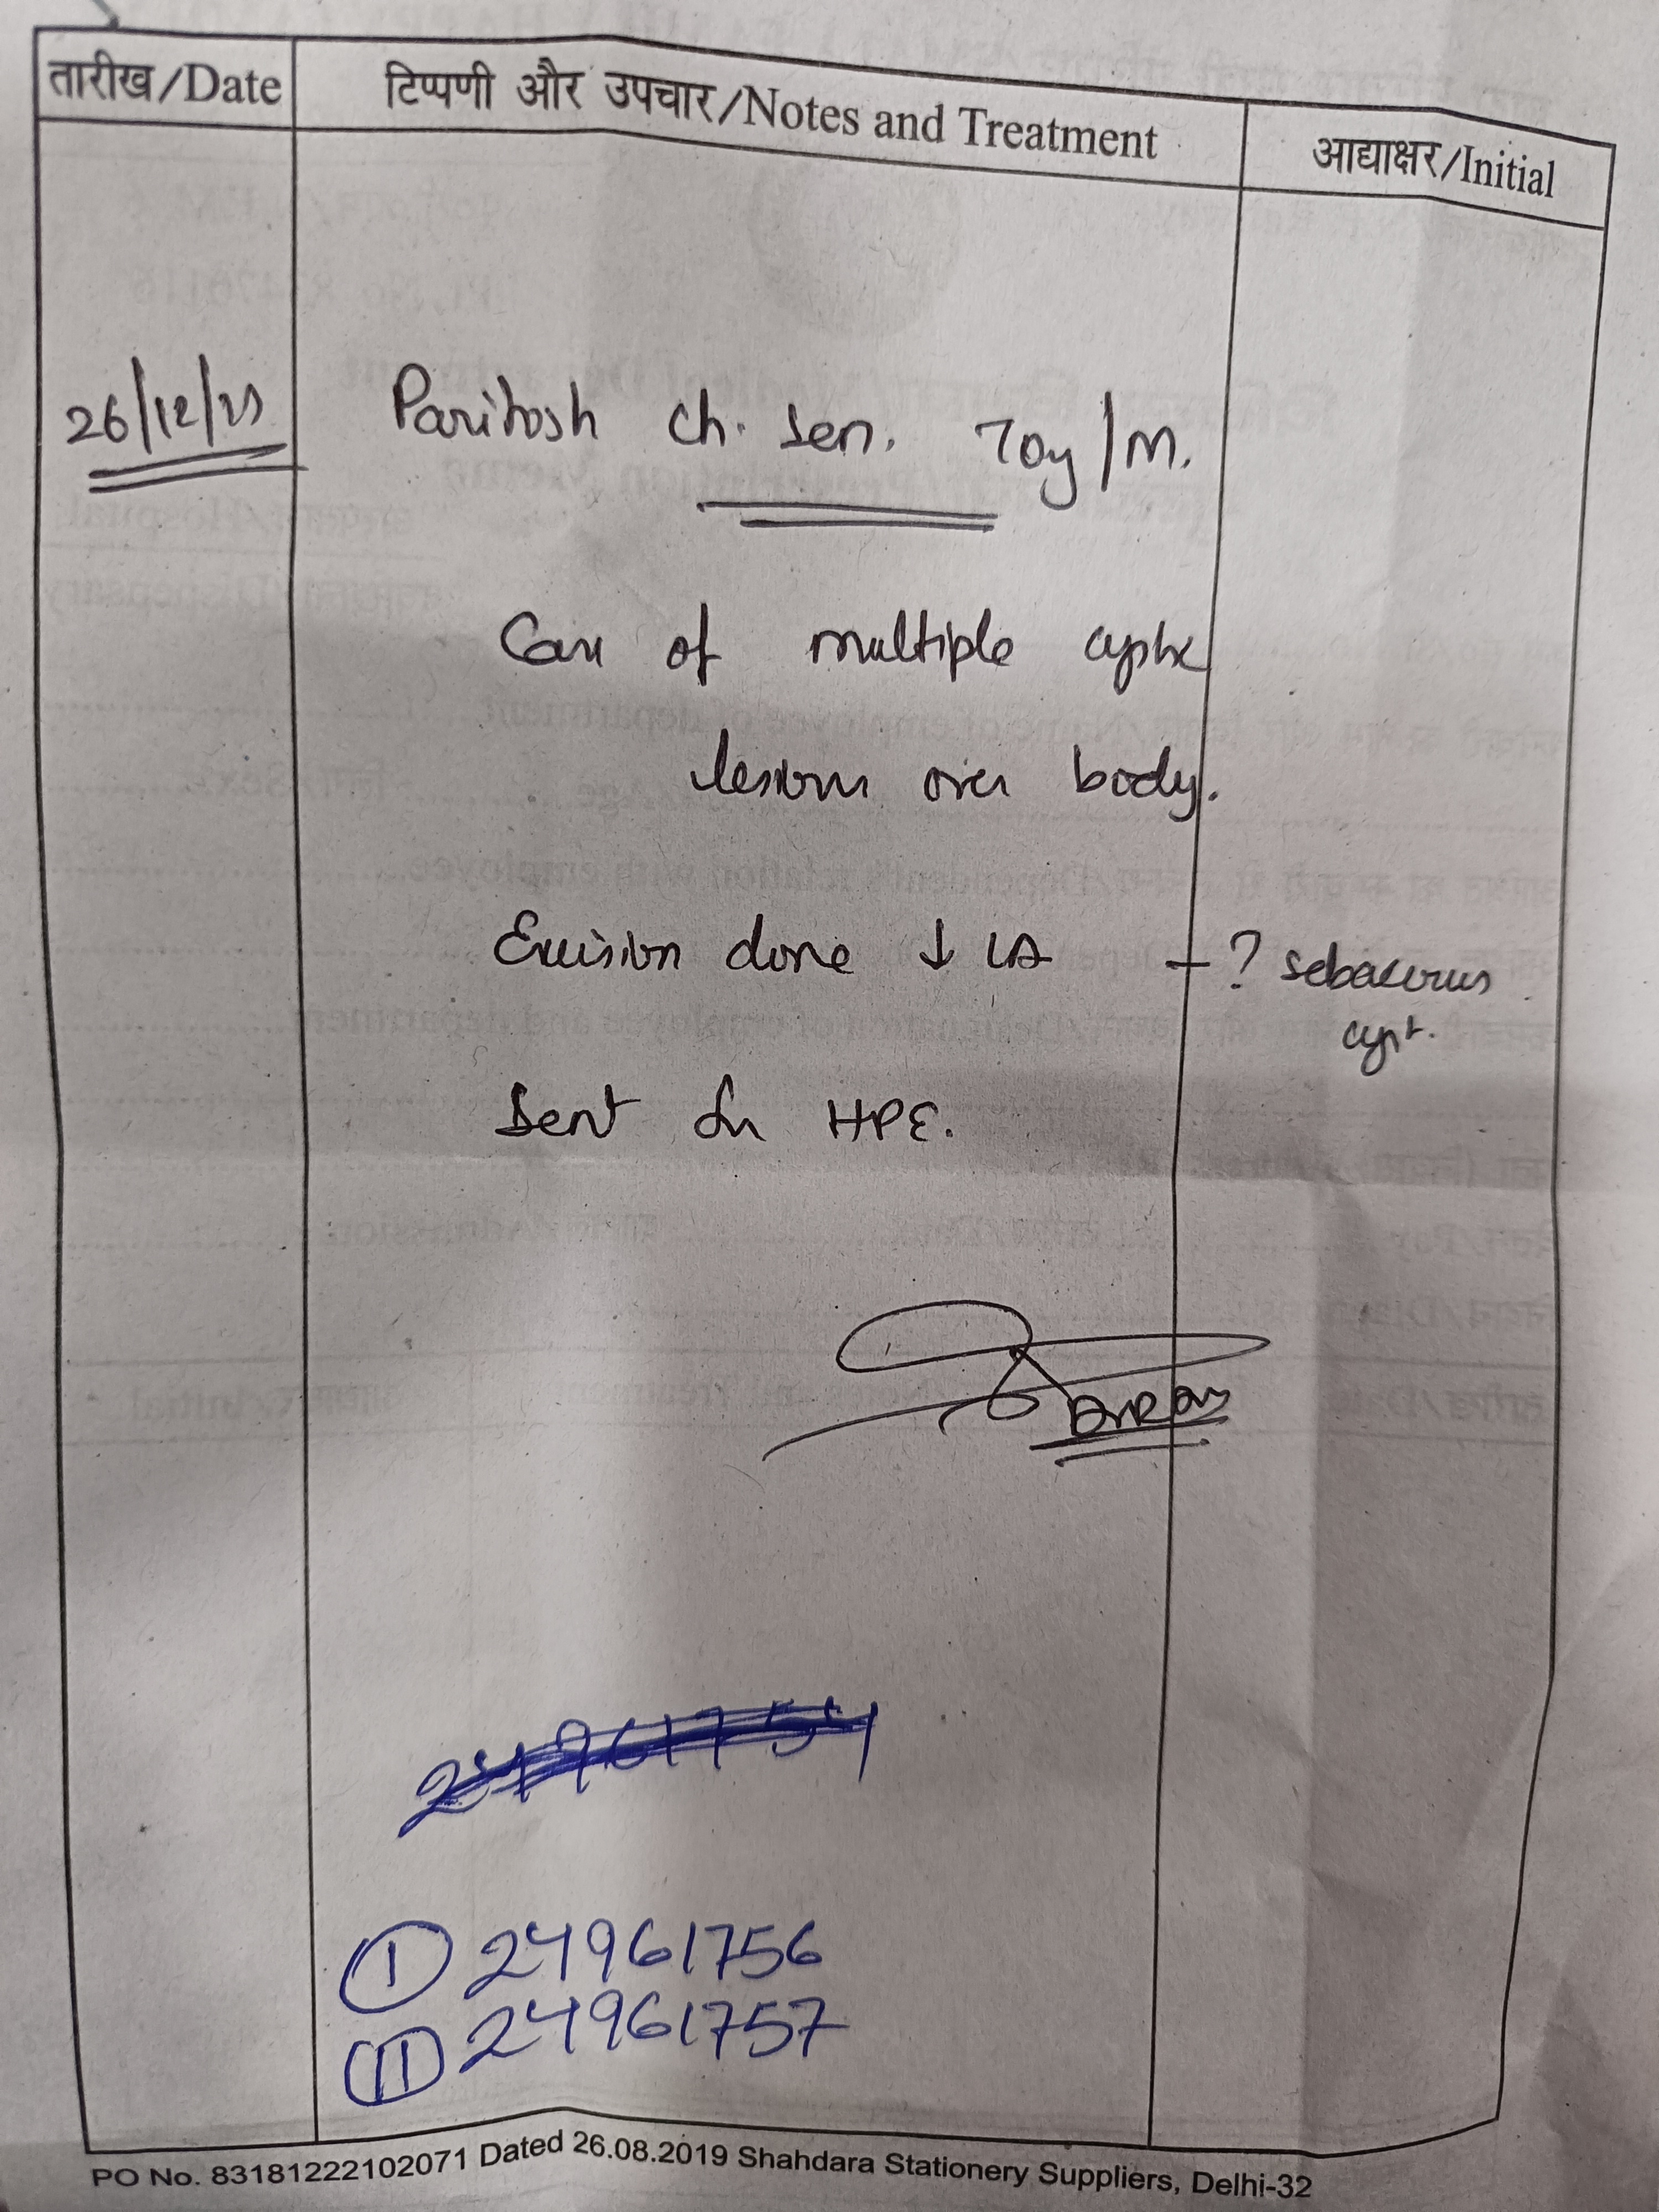 तारीख/Date
टिप्पणी और उपचार/Notes and Treatment
आद्याक्षर/Initial
26/12/23
Paritosh Ch. Sen. 70y/M.
Case of multiple cystic
lesions over body.
Excision done ↓ LA → ? sebaceous
cyst.
Sent for HPE.
24961754
I 24961756
II 24961757
PO No. 83181222102071 Dated 26.08.2019 Shahdara Stationery Suppliers, Delhi-32